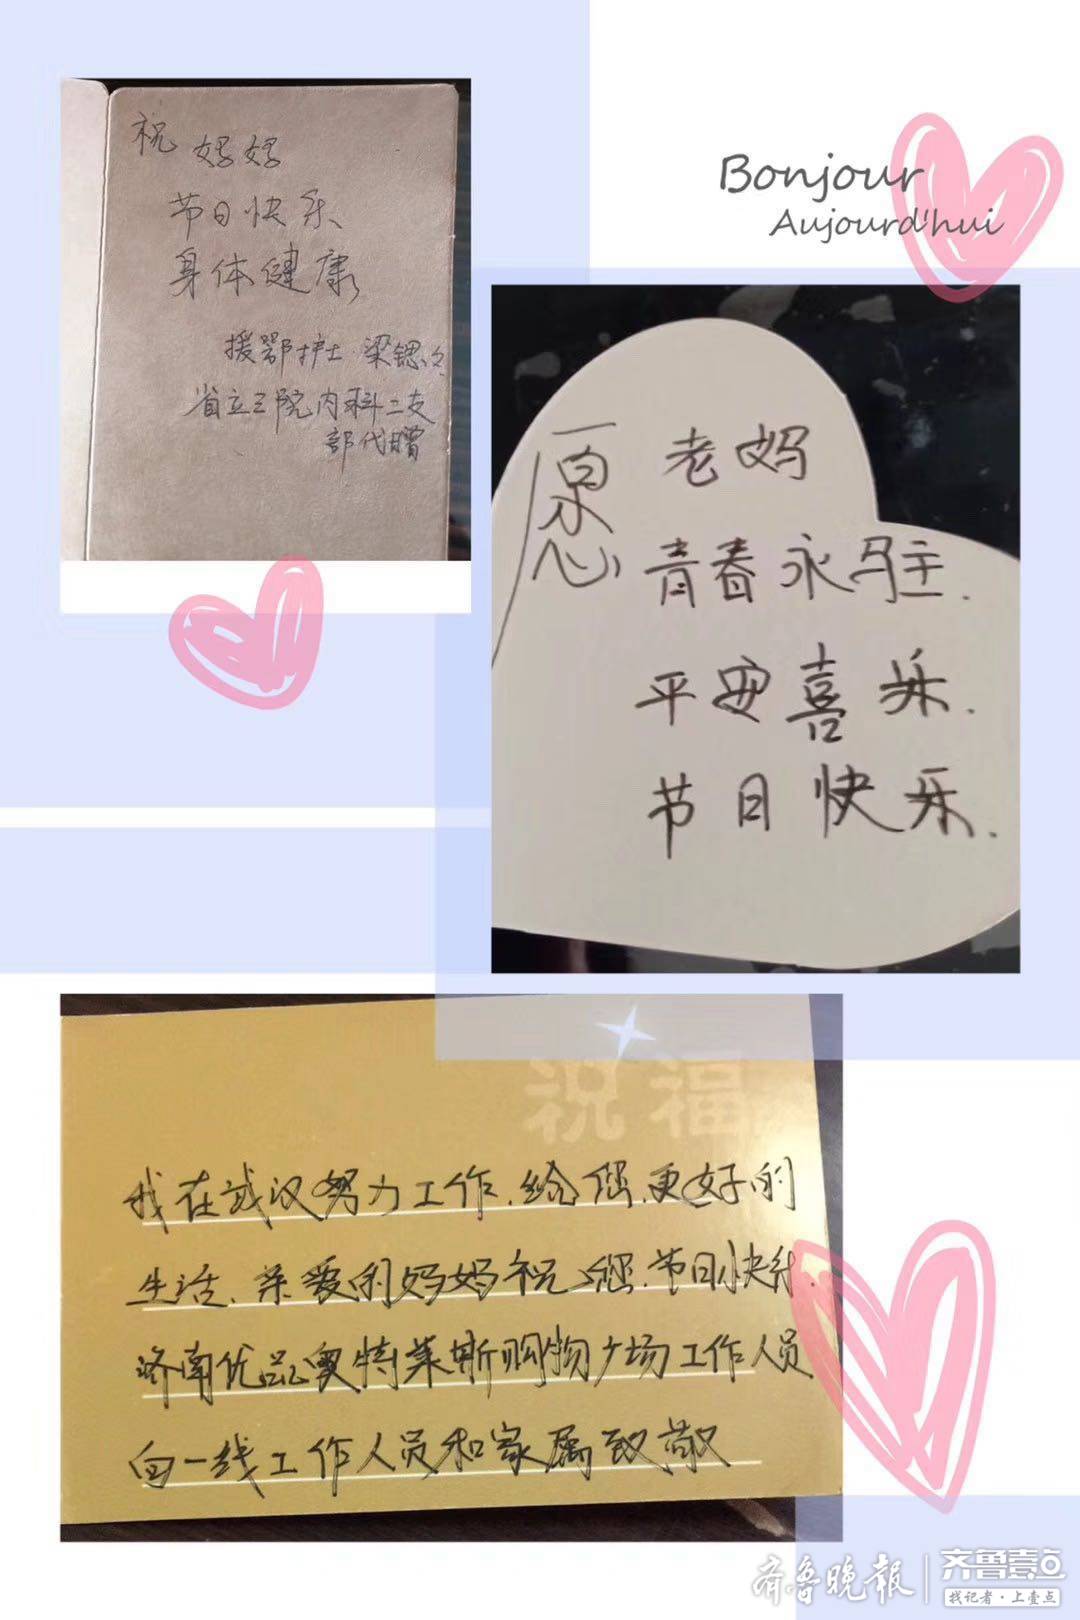 祝 妈妈
节日快乐
身体健康
援鄂护士 梁锶
省立三院内科二支
部代赠
Bonjour
Aujourd'hui
愿
老妈
青春永驻.
平安喜乐.
节日快乐.
祝福
我在武汉努力工作.给您.更好的
生活.亲爱的妈妈祝您.节日快乐.
济南优品奥特莱斯购物广场工作人员
向一线工作人员和家属致敬
齐鲁晚报 齐鲁壹点
找记者·上壹点